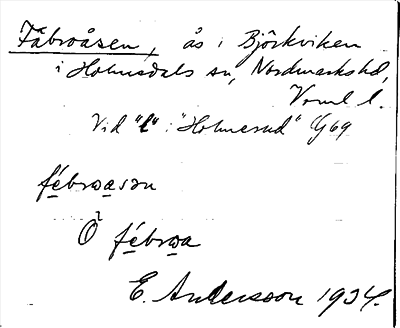 Fäbroåsen, ås i Björkviken
i Holmedals sn, Nordmarks hd,
Verml l.
Vid "l" i "Holmerud" G69
fébrωasωn
Ö fébrωa
E. Andersson 1934.